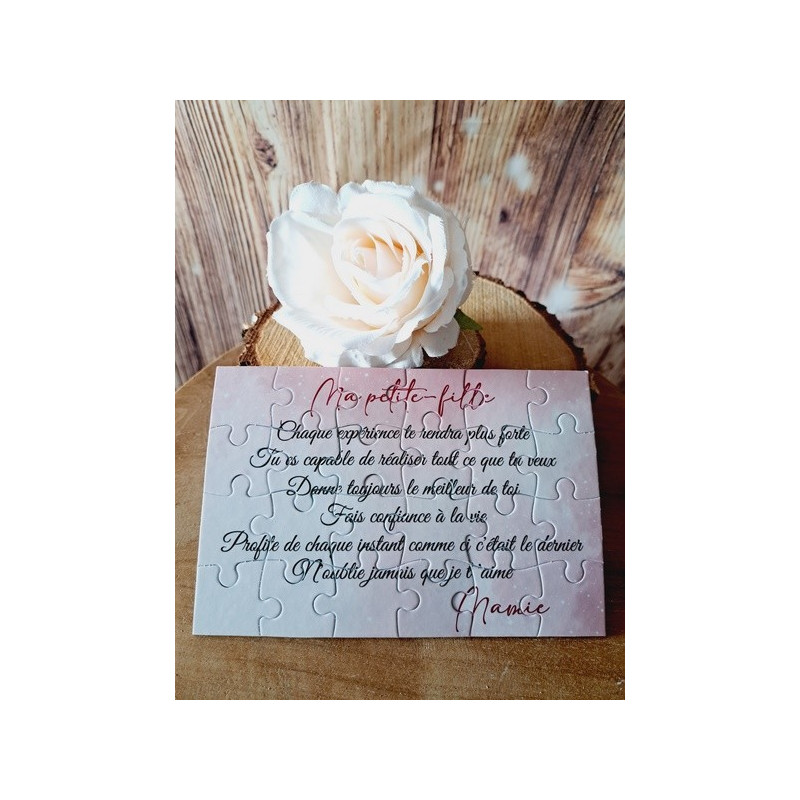 Ma petite-fille
Chaque expérience te rendra plus forte
Tu es capable de réaliser tout ce que tu veux
Donne toujours le meilleur de toi
Fais confiance à la vie
Profite de chaque instant comme si c'était le dernier
N'oublie jamais que je t'aime
Mamie